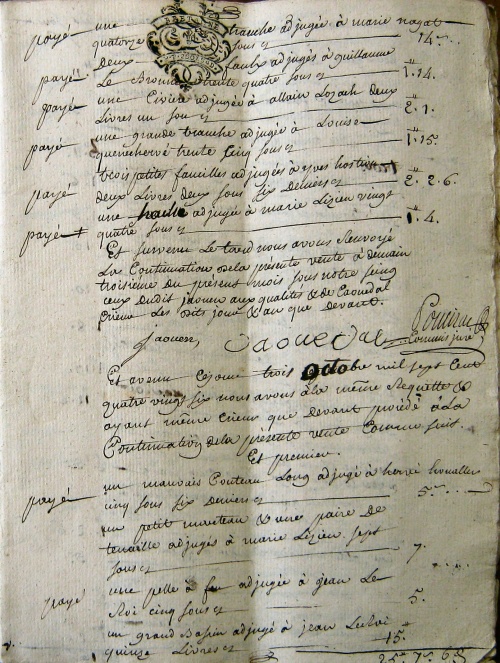 payé une tranche adjugée à marie nagat
quatorze sous 14
deux faulx adjugés à guillaume
payé Le trente quatre sous 1.14.
payé une Civière adjugée à allain Lozach deux
Livres un sou 2.1.
une grande tranche adjugée à Louise
payé quenehervé trente cinq sous 1.15.
trois petites faucilles adjugés à yves
payé deux Livres deux sous six Deniers 2.2.6.
une hache adjugée à marie Lizien vingt
payé + quatre sous 1.4.
Et survenu Le tard nous avons Renvoyé
La Continuation de la présente vente à demain
troisieme du présent mois sous notre seing
ceux dudit jaouen aux qualités & de Caouedal
Crieur Les dits jour & an que devant.
jaouen, Caouedal
Commis juré
Et avenu Ce jour trois octobre mil sept Cent
quatre vingt six nous avons à la même Requette &
ayant même Crieur que devant procédé à la
Continuation de la présente vente Comme suit.
Et premier.
un mauvais Couteau Long adjugé à hervé
payé cinq sous six Deniers 5
un petit marteau & une paire De
tenaille adjugés à marie Lizien sept
sous 7.
une pelle à feu adjugée à jean Le
payé Roi cinq sous 5.
un grand Bassin adjugé à jean
quinze Livres 15.
25. 7. 6